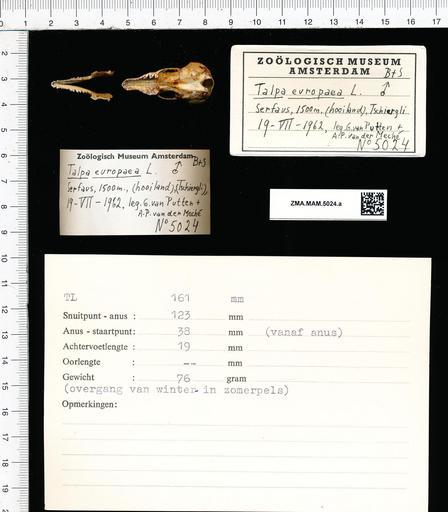 ZOÖLOGISCH MUSEUM
AMSTERDAM B+S
Talpa europaea L. ♂
Serfaus, 1500m. (hooiland), Tschiergli
19-VII-1962, leg. G. van Putten +
A.P. van der Meché
Nº 5024
Zoölogisch Museum Amsterdam
B+S
Talpa europaea L. ♂
Serfaus, 1500m., (hooiland),(Tschiergli),
19-VII-1962, leg. G. van Putten +
A.P. van der Meché
Nº 5024
ZMA.MAM.5024.a
TL 161 mm
Snuitpunt - anus : 123 mm
Anus - staartpunt: 38 mm (vanaf anus)
Achtervoetlengte : 19 mm
Oorlengte : -- mm
Gewicht : 76 gram
(overgang van winter- in zomerpels)
Opmerkingen: